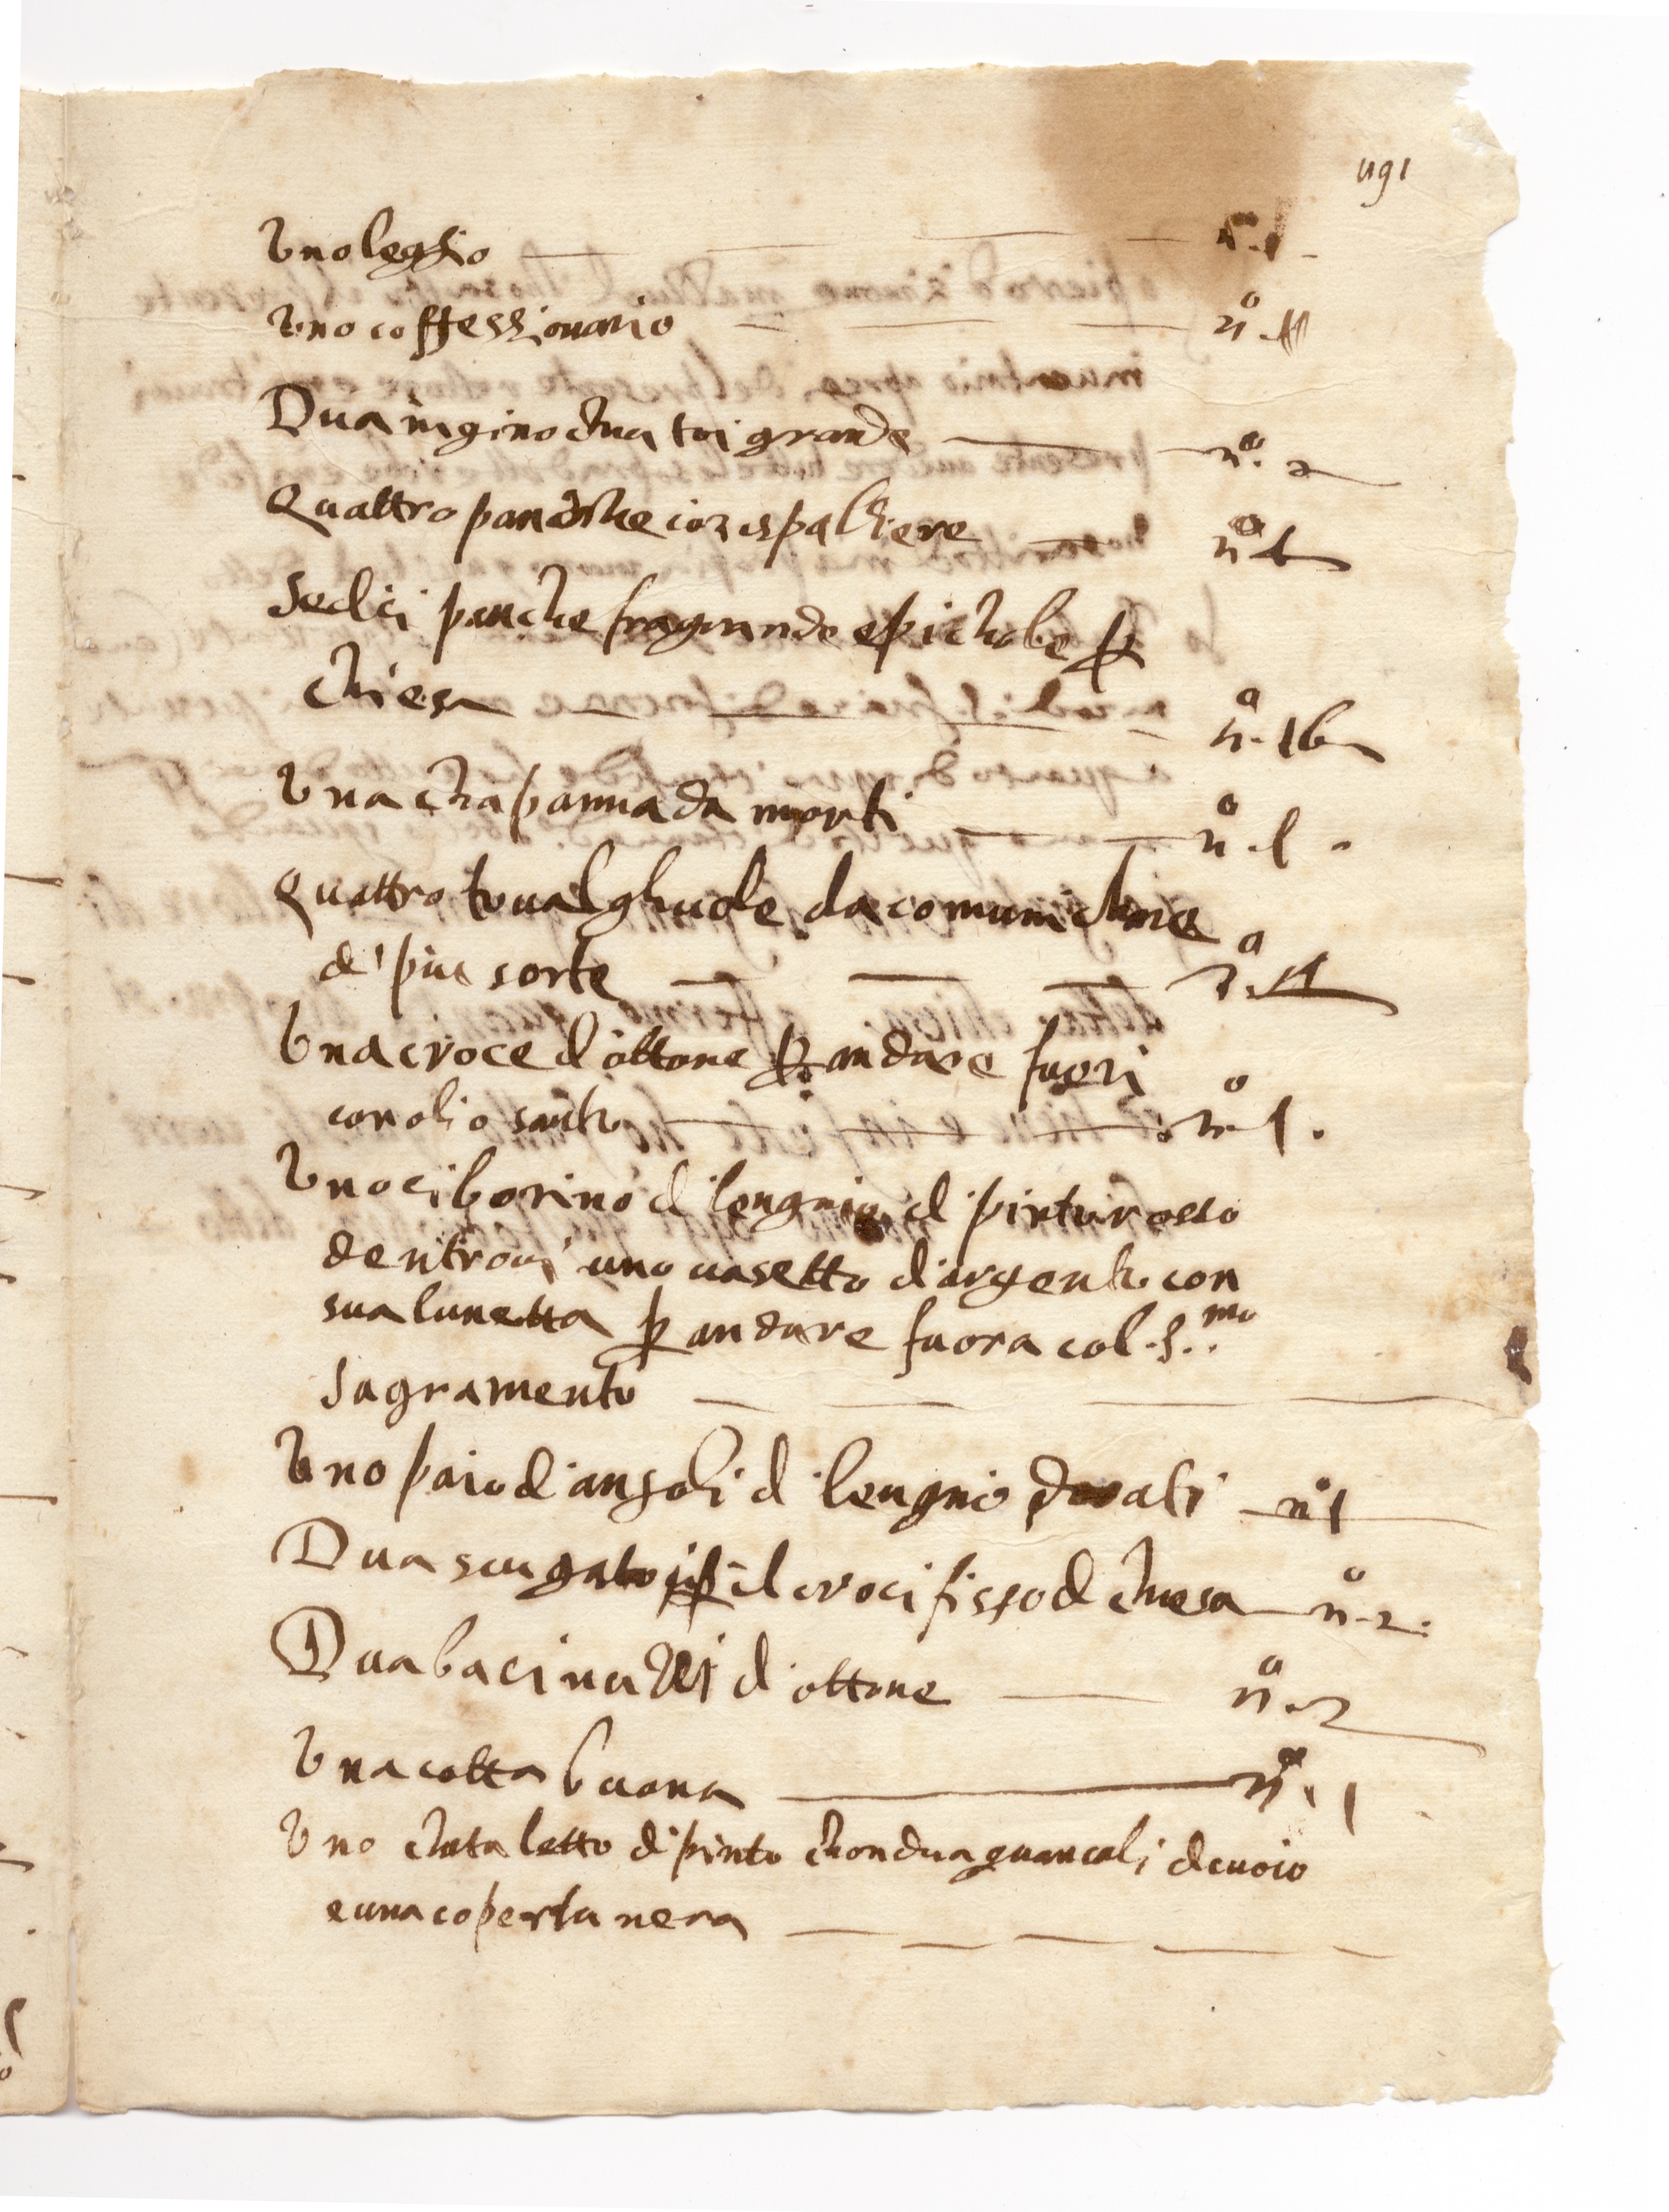 491
Uno leggio n.º 1
Uno coffessionario n.º
Dua inginochiatoi grande n.º 2
Quattro panche con ispalliere n.º 4
Sedici panche fra grande e pichole p
chiesa n.º 16
Una chapanna da morti n.º 1
Quattro tovalghuole da comunichare
di piu sorte n.º 4
Una croce d'ottone p andare fuori
con olio santo n.º 1
Uno ciborino di lengnio dipinto rosso
dentrovi uno vasetto d'argento con
sua lunetta p andare fuora col S.mo
Sagramento
Uno paio d'angoli di lengnio dorati nº 1
Dua sciugatoi p il crocifisso d chiesa n.º 2
Dua bacinetti d'ottone n.º 2
Una cotta buona n.º 1
Uno chataletto dipinto chon dua guancali di cuoio
e una coperta nera